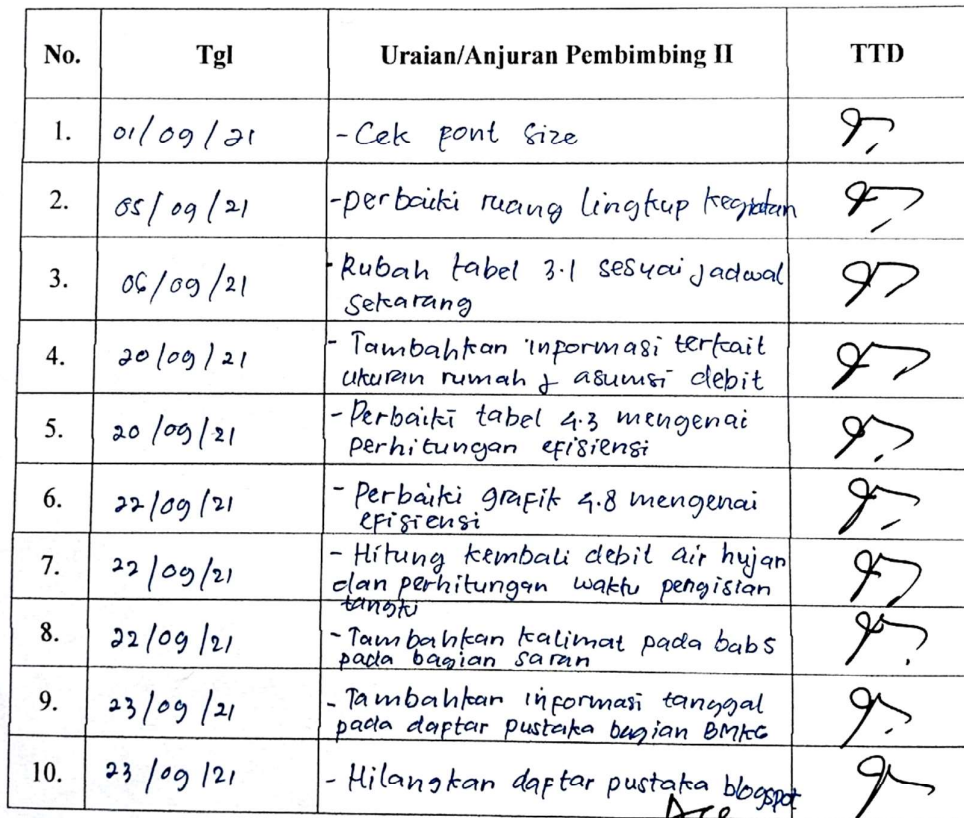 No. Tgl Uraian/Anjuran Pembimbing II TTD
1. 01/09/21 - Cek font size
2. 05/09/21 - perbaiki ruang lingkup kegiatan
3. 06/09/21 - Rubah tabel 3.1 sesuai jadwal
sekarang
4. 20/09/21 - Tambahkan informasi terkait
ukuran rumah & asumsi debit
5. 20/09/21 - Perbaiki tabel 4.3 mengenai
perhitungan efisiensi
6. 22/09/21 - Perbaiki grafik 4.8 mengenai
efisiensi
7. 22/09/21 - Hitung kembali debit air hujan
dan perhitungan waktu pengisian
tangki
8. 22/09/21 - Tambahkan kalimat pada bab 5
pada bagian saran
9. 23/09/21 - Tambahkan informasi tanggal
pada daftar pustaka bagian BMKG
10. 23/09/21 - Hilangkan daftar pustaka blogspot